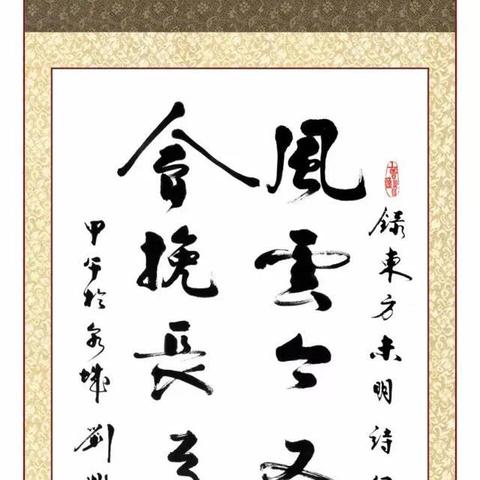 錄東方未明詩
風雲今又
會挽長
甲午於泉城劉